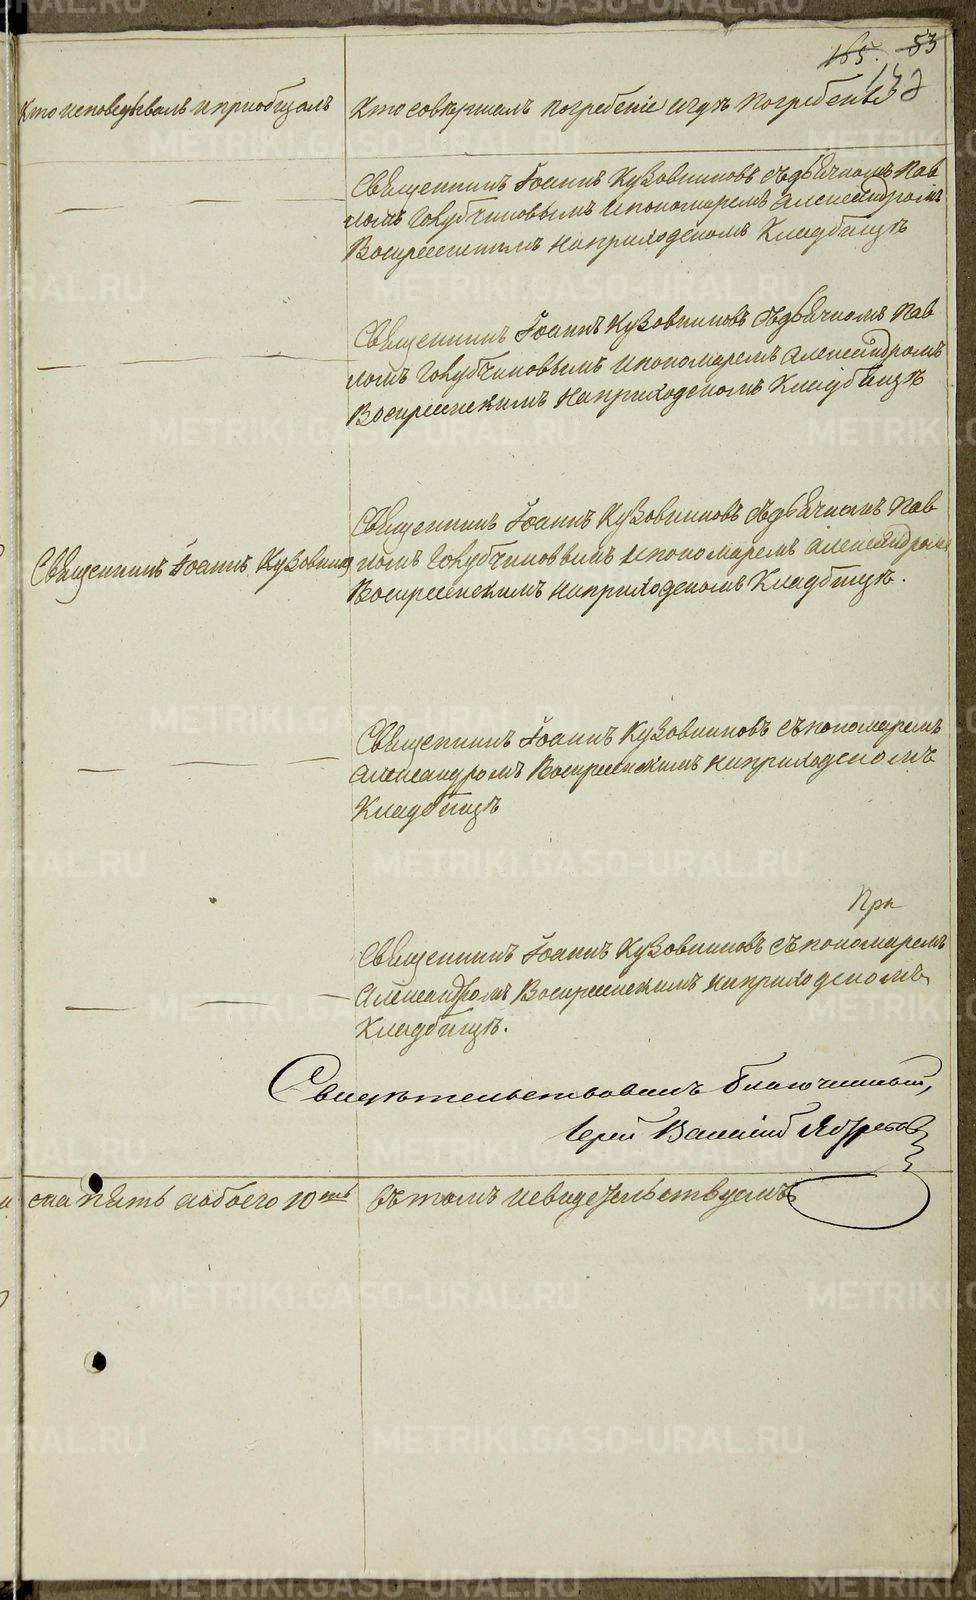 165. 53
132
Кто исповедывалъ и приобщалъ
Кто совершалъ погребенiе и гдѣ погребены
Священникъ Iоаннъ Кузовниковъ съ дьячкомъ Пав
ломъ Голубчиковымъ и пономаремъ Александромъ
Воскресенскимъ на приходскомъ Кладбищѣ
Священникъ Iоаннъ Кузовниковъ съ дьячкомъ Пав
ломъ Голубчиковымъ и пономаремъ Александромъ
Воскресенскимъ на приходскомъ Кладбищѣ
Священникъ Iоаннъ Кузовниковъ
Священникъ Iоаннъ Кузовниковъ съ дьячкомъ Пав
ломъ Голубчиковымъ и пономаремъ Александромъ
Воскресенскимъ на приходскомъ Кладбищѣ.
Священникъ Iоаннъ Кузовниковъ съ пономаремъ
Александромъ Воскресенскимъ на приходскомъ
Кладбищѣ
При
Священникъ Iоаннъ Кузовниковъ съ пономаремъ
Александромъ Воскресенскимъ на приходскомъ
Кладбищѣ.
Свидѣтельствовалъ благочинный,
Iерей
ска пять а обоего 10 ть въ томъ и свидетельствуемъ
METRIKI.GASO-URAL.RU